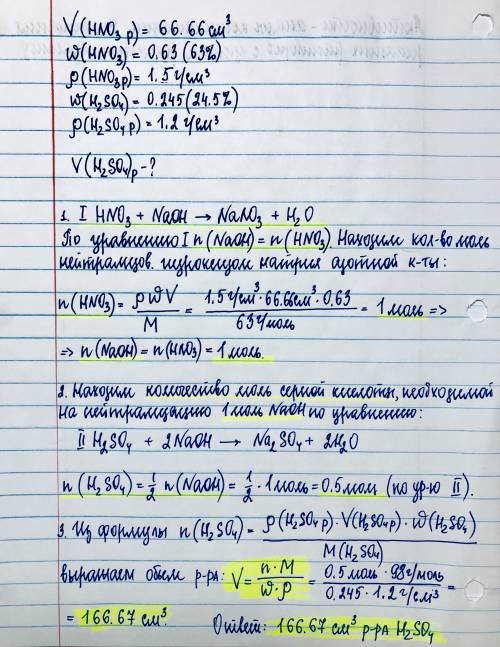 V(HNO₃ р) = 66.66 см³
ω(HNO₃) = 0.63 (63%)
ρ(HNO₃ р) = 1.5 г/см³
ω(H₂SO₄) = 0.245 (24.5%)
ρ(H₂SO₄ р) = 1.2 г/см³
V(H₂SO₄)р - ?
1. I HNO₃ + NaOH → NaNO₃ + H₂O
По уравнению I n(NaOH) = n(HNO₃). Находим кол-во моль
нейтрализов. гидроксидом натрия азотной к-ты:
n(HNO₃) = ρωV / M = 1.5 г/см³ · 66.66 см³ · 0.63 / 63 г/моль = 1 моль =>
=> n(NaOH) = n(HNO₃) = 1 моль.
2. Находим количество моль серной кислоты, необходимой
на нейтрализацию 1 моль NaOH по уравнению:
II H₂SO₄ + 2NaOH → Na₂SO₄ + 2H₂O
n(H₂SO₄) = 1/2 n(NaOH) = 1/2 · 1 моль = 0.5 моль (по ур-ю II).
3. Из формулы n(H₂SO₄) = ρ(H₂SO₄ р) · V(H₂SO₄ р) · ω(H₂SO₄) / M(H₂SO₄)
выражаем объем р-ра: V = n · M / ω · ρ = 0.5 моль · 98 г/моль / 0.245 · 1.2 г/см³ =
= 166.67 см³.
Ответ: 166.67 см³ р-ра H₂SO₄